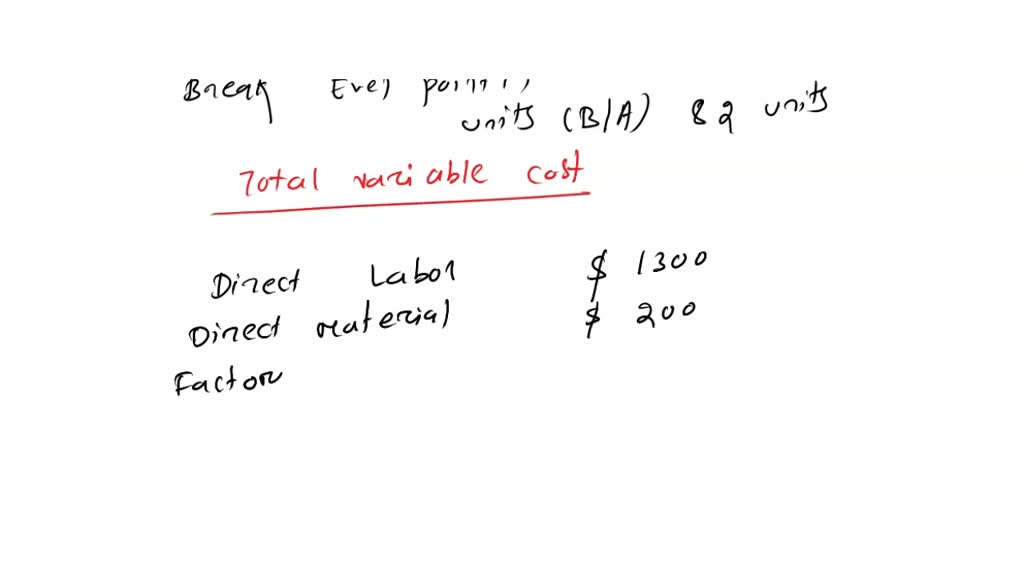 Break Even point,
units (B/A) 82 units
Total variable cost
Direct Labor $ 1300
Direct material $ 200
Factor